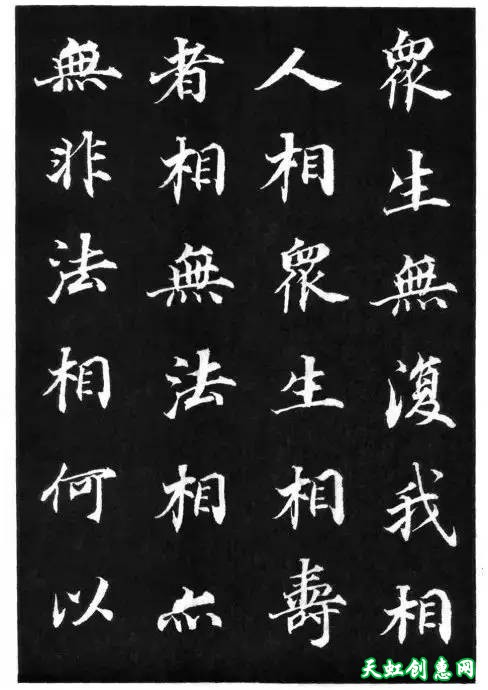 眾生無復我相
人相眾生相壽
者相無法相亦
無非法相何以
天虹创惠网